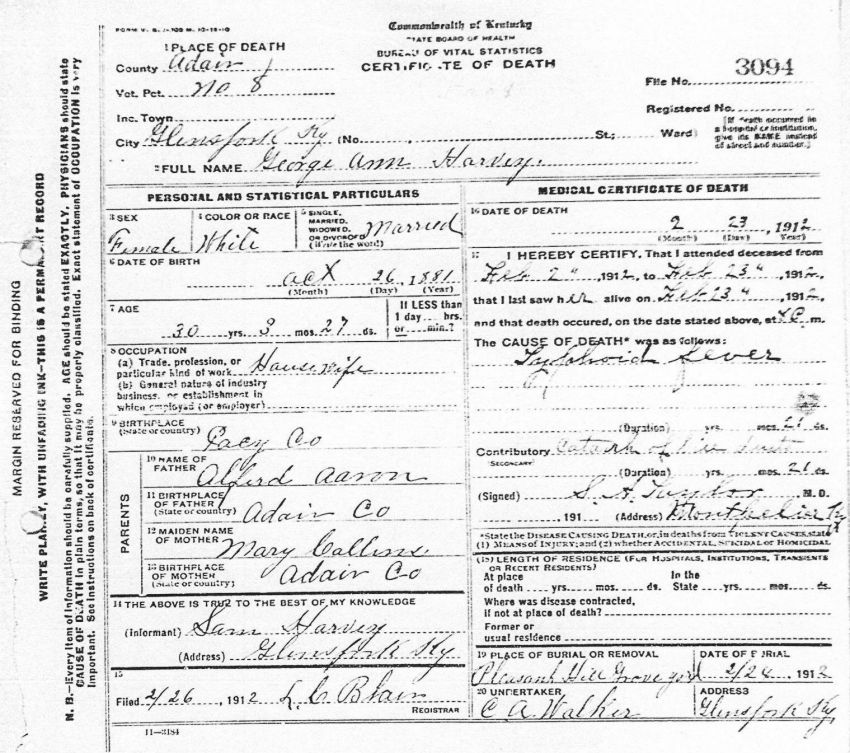 Commonwealth of Kentucky
STATE BOARD OF HEALTH
BUREAU OF VITAL STATISTICS
CERTIFICATE OF DEATH
1 PLACE OF DEATH
County Adair
Vot. Pct. No 8
Inc. Town
City Glensfork Ky (No. St; Ward)
File No. 3094
Registered No.
[If death occurred in a hospital or institution, give its NAME instead of street and number.]
2 FULL NAME George Ann Harvey.
PERSONAL AND STATISTICAL PARTICULARS
3 SEX
Female
4 COLOR OR RACE
White
5 SINGLE, MARRIED, WIDOWED, OR DIVORCED (Write the word)
Married
6 DATE OF BIRTH
Oct 26, 1881
(Month) (Day) (Year)
7 AGE
30 yrs. 3 mos. 27 ds.
If LESS than 1 day.... hrs. or.... min.?
8 OCCUPATION
(a) Trade, profession, or particular kind of work House wife
(b) General nature of industry business, or establishment in which employed (or employer)
9 BIRTHPLACE
(State or country)
Co
10 NAME OF FATHER
Alferd Aaron
11 BIRTHPLACE OF FATHER
(State or country)
Adair Co
12 MAIDEN NAME OF MOTHER
Mary Collins
13 BIRTHPLACE OF MOTHER
(State or country)
Adair Co
PARENTS
14 THE ABOVE IS TRUE TO THE BEST OF MY KNOWLEDGE
(Informant) Sam Harvey
(Address) Glensfork Ky
15
Filed 2/26, 1912 L. C. Blair
REGISTRAR
11—3184
MEDICAL CERTIFICATE OF DEATH
16 DATE OF DEATH
2 23, 1912
(Month) (Day) (Year)
17 I HEREBY CERTIFY, That I attended deceased from
Feb 2", 1912, to Feb 23", 1912,
that I last saw her alive on Feb 23", 1912,
and that death occured, on the date stated above, at m.
The CAUSE OF DEATH* was as follows:
Typhoid fever
(Duration) yrs. mos. 21 ds.
Contributory Catarrh of
(SECONDARY)
(Duration) yrs. mos. 21 ds.
(Signed) S. A. Taylor M. D.
, 191 (Address) Montpelier Ky
*State the DISEASE CAUSING DEATH, or, in deaths from VIOLENT CAUSES, state (1) MEANS OF INJURY; and (2) whether ACCIDENTAL, SUICIDAL OR HOMICIDAL
(18) LENGTH OF RESIDENCE (FOR HOSPITALS, INSTITUTIONS, TRANSIENTS OR RECENT RESIDENTS)
At place of death .... yrs. .... mos. .... ds.
In the State .... yrs. .... mos. .... ds.
Where was disease contracted,
if not at place of death?
Former or usual residence
19 PLACE OF BURIAL OR REMOVAL
Pleasant Hill Grove yard
DATE OF BURIAL
2/24, 1912
20 UNDERTAKER
C A Walker
ADDRESS
Glensfork Ky.
MARGIN RESERVED FOR BINDING
WRITE PLAINLY, WITH UNFADING INK—THIS IS A PERMANENT RECORD
N. B.—Every item of information should be carefully supplied. AGE should be stated EXACTLY. PHYSICIANS should state
CAUSE OF DEATH in plain terms, so that it may be properly classified. Exact statement of OCCUPATION is very
important. See instructions on back of certificate.